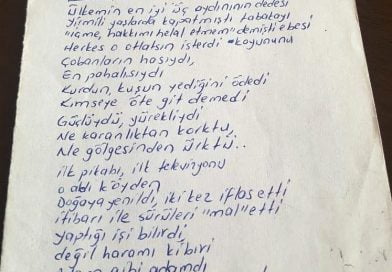 Ülkemin en iyi üç aydınının dedesi
Yirmili yaşlarda kapatmıştı tabakayı
"içme, hakkımı helal etmem" demişti ebesi
Herkes o otlatsın isterdi koyununu
Çobanların hasıydı,
En pahalısıydı
Kurdun, kuşun yediğini ödedi
Kimseye öte git demedi
Güçlüydü, yürekliydi
Ne karanlıktan korktu,
Ne gölgesinden ürktü..
ilk pikabı, ilk televizyonu
o aldı köyden
Doğaya yenildi, iki kez iflas etti
itibarı ile sürüleri "mal" etti
yaptığı işi bilirdi
değil haramı kibiri
gibi adamdı